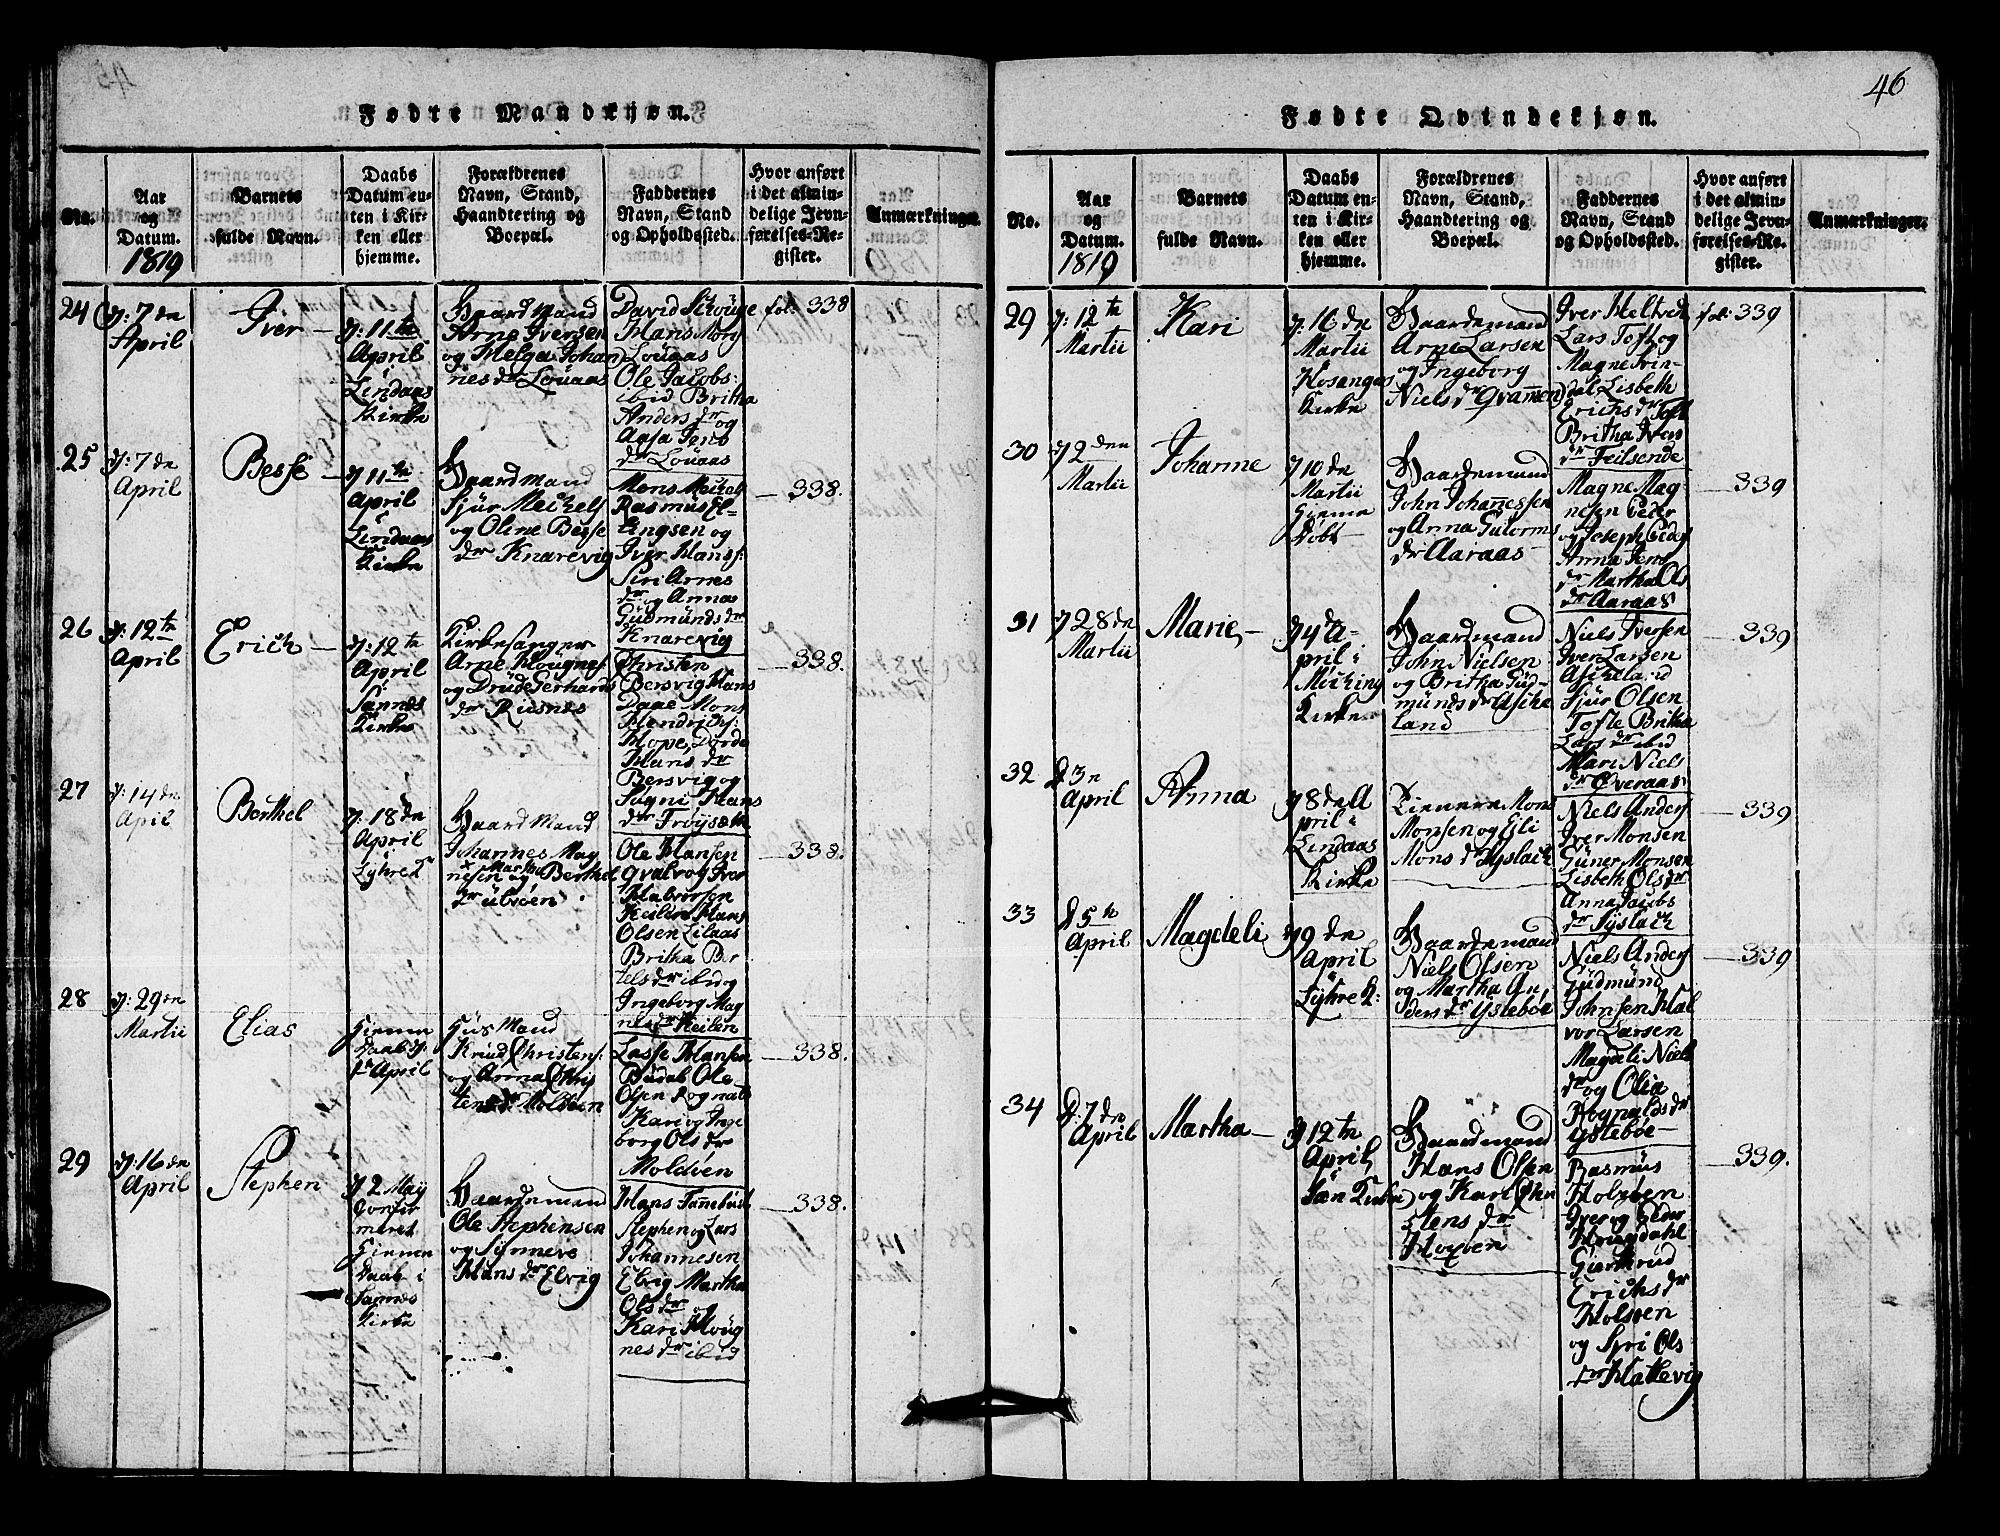 46
Fødte Mandkjøn.
No.
Aar
og
Datum.
1819
Barnets
fulde Navn.
Daabs
Datum en-
ten i Kir-
ken eller
hjemme.
Forældrenes
Navn, Stand,
Haandtering og
Boepæl.
Faddernes
Navn, Stand
og Opholdssted.
Hvor anført
i det almin-
delige Jevn-
førelses-Re-
gister.
Anmærkninger.
24
d: 7 de
April
Iver
d: 11 te
April
i
Lindaas
Kirke
Gaardmand
Arne Iversen
og Helga Johan
nes dr Louaas
David Skouge
Hans Mons
Louaas
Ole Jacobs:
ibid Britha
Anders dr og
Aasa Jens
dr Louaas
fol: 338
25
d: 7 de
April
Besse
d 11 te
April
i
Lindaas
Kirke
Gaardmand
Sjur Meikels
og Oline Besse
dr Knarevig
Mons Meikels
Rasmus El-
lingsen og
Iver Hans:
Siri Arnes
dr og Anna
Gudmunds dr
Knarevig
338.
26
d: 12 te
April
Erich
d: 12 te
April
i
Sannes
Kirke
Kirkesanger
Arne Mougnes:
og Drude Gerhards
dr Risnes
Christen
Bersvig Hans
Daae Mons
Hendrichs:
Hope, Dorde
Hans dr
Bersvig og
Sogni Hans
dr Frøysæth
338.
27
d: 14 de
April
Berthel
d: 18 de
April
i
Lyhred
Gaard Mand
Johannes Mag
nesen og Martha Berthel
dr Ulvøen
Ole Hansen
Qvalvog Iver
Halvorsen
Keilen Hans
Olsen Lilaas
Britha Ber
tels dr ibid og
Ingeborg Mag
nes dr Keilen
338.
28
d: 29 de
Martii
Elias
Hiemme
Daab d:
April
Huus Mand
Knud Christens:
og Anna Chris
tens dr Moldøen
Lasse Hansen
Budal Ole
Olsen Rognals
Kari og Inge
borg Ols dr
Moldøen
338.
29
d: 16 de
April
Stephen
d 2 May
Confir
meret
Hiemme
Daab i
Sannes
Kirke
Gaardemand
Ole Stephensen
og Synneve
Hans dr Elvig
Hans
Stephen og Lars
Johannesen
Elvig Martha
Ols dr og
Kari Moug
nes dr ibid
338.
Fødte Qvindekjøn.
No.
Aar
og
Datum.
1819
Barnets
fulde Navn.
Daabs
Datum en-
ten i Kir-
ken eller
hjemme.
Forældrenes
Navn, Stand,
Haandtering og
Boepæl.
Faddernes
Navn, Stand
og Opholdssted.
Hvor anført
i det almin-
delige Jevn-
førelses-Re-
gister.
Anmærkninger.
29
d: 12 te
Martii
Kari
d: 16 de
Martii
Hosanger
Kirke
Gaardemand
Arne Larsen
og Ingeborg
Niels dr Qvammen
Iver Heltvet
Lars Toft og
Magne Svin-
dal Lisbeth
Erichs dr Toft
Britha Ivers
dr Feilsende
fol: 339
30
d 2 den
Martii
Johanne
d 10 de
Martii
Hiemme
Døbt
Gaardemand
John Johannessen
og Anna Gulorms
dr Aaraas
Magne Mag-
nesen Peder
og Joseph Peders
Anna Jens
dr Martha Ols
dr Aaraas
339
31
d 28 de
Martii
Marie
d 4 de A-
pril i
Mecking
Kirke
Gaardmand
John Nielsen
og Britha Gud-
munds dr Aske
land
Niels Iversen
Iver Larsen
Askeland
Sjur Olsen
Tofte Britha
Lars dr ibid
Mari Niels
dr Øveraas
339
32
d 3 de
April
Anna
d 8 de A
pril i
Lindaas
Kirke
Mons
Monsen og Eli
Mons dr Syslach
Niels Anders
Iver Monsen
Guner Monsen
Lisbeth Ols dr
Anna Jacobs
dr Syslach
339
33
d 5 te
April
Magdeli
d 9 de
April
i
Lyhre K:
Gaardemand
Niels Olsen
og Martha An
ders dr Ystebøe
Niels Anders
Gudmund
Johnsen Hal
vor Larsen
Magdeli Niels
dr og Olia
Rognalds dr
Ystebøe
339
34
d: 7 de
April
Martha
d 12 te
April
i
San Kirke
Gaardmand
Hans Olsen
og Kari Chri
stens dr
Hopen
Rasmus
Holsøen
Iver og Peder
Hougdahl
Gjertrud
Erichs dr
Holsøen
og Syri Ols
dr Hallevig
339.